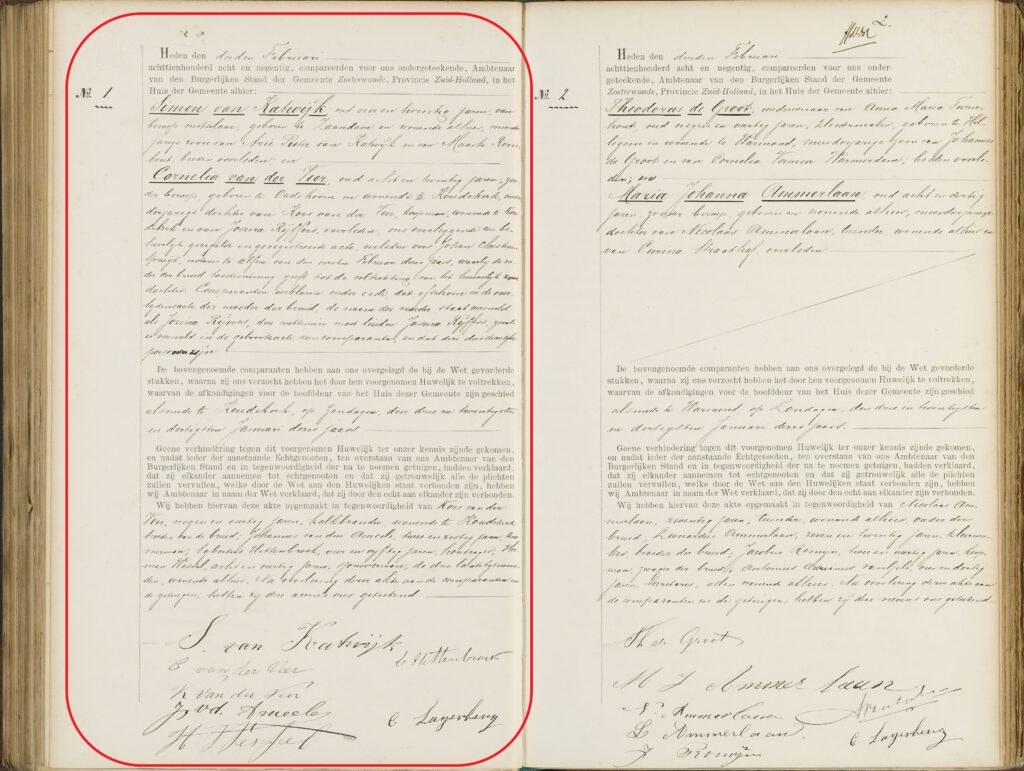 Heden den derden Februari
achttienhonderd acht en negentig, compareerden voor ons ondergeteekende, Ambtenaar
van den Burgerlijken Stand der Gemeente Zoeterwoude, Provincie Zuid-Holland, in het
Huis der Gemeente alhier:
No. 1
Simon van Katwijk, oud een en twintig jaren, van
beroep metselaar, geboren te Zaandam en wonende alhier, meerder
jarige zoon van Arie Pieter van Katwijk en van Maartje Rom
bout, beiden overleden, en
Cornelia van der Veer, oud acht en twintig jaren, zon
der beroep, geboren te Oudshoorn en wonende te Koudekerk, meer
derjarige dochter van Kors van der Veer, koopman, wonende te Kou
dekerk en van Josina Rijffers, overleden, ons overleggende en be
hoorlijk geregistreerde acte, verleden voor Johan Christiaan
notaris te Alfen van den Februari dezes jaars, waarbij de va
der der bruid toestemming geeft tot de voltrekking van het huwelijk zijner
dochter. Comparanten verklaren onder eede dat ofschoon in de over
lijdensacte der moeder der bruid, de naam der moeder staat vermeld
als Josina Rijvers, deze moet luiden Josina Rijffers, zooals
is vermeld in de geboorteacte van comparante, en dat deze dezelfde
persoon zijn
De bovengenoemde comparanten hebben aan ons overgelegd de bij de Wet gevorderde
stukken, waarna zij ons verzocht hebben het door hen voorgenomen Huwelijk te voltrekken,
waarvan de afkondigingen voor de hoofddeur van het Huis dezer Gemeente zijn geschied
alsmede te Koudekerk, op Zondagen, den drie en twintigsten
en dertigsten Januari dezes jaars
Geene verhindering tegen dit voorgenomen Huwelijk ter onzer kennis zijnde gekomen,
en nadat ieder der aanstaande Echtgenooten, ten overstaan van ons Ambtenaar van den
Burgerlijken Stand en in tegenwoordigheid der na te noemen getuigen, hadden verklaard,
dat zij elkander aannemen tot echtgenooten en dat zij getrouwelijk alle de plichten
zullen vervullen, welke door de Wet aan den Huwelijken staat verbonden zijn, hebben
wij Ambtenaar in naam der Wet verklaard, dat zij door den echt aan elkander zijn verbonden.
Wij hebben hiervan deze akte opgemaakt in tegenwoordigheid van Kors van der
Veer, negen en veertig jaren, kalkbrander, wonende te Koudekerk
broeder van de bruid, Johannes van den Ameele, twee en zestig jaren,
Egbertus Uittenbroek, vier en vijftig jaren, Her
man Wessel, acht en veertig jaren, de drie laatstgenoem
den, wonende alhier. Na voorlezing dezer akte aan de comparanten en
de getuigen, hebben zij deze nevens ons geteekend
S. van Katwijk
C van der Veer
E Uittenbroek
K van der Veer
J. v.d. Ameele
C Lagerberg
H Wessel
2.
Heden den derden Februari
achttienhonderd acht en negentig, compareerden voor ons onder-
geteekende, Ambtenaar van den Burgerlijken Stand der Gemeente
Zoeterwoude, Provincie Zuid-Holland, in het Huis der Gemeente
alhier:
No. 2
Theodorus de Groot, weduwnaar van Anna Maria Turen
hout, oud negen en veertig jaren, kleedermaker, geboren te Hil
legom en wonende te Warmond, meerderjarige zoon van Johannes
de Groot en van Cornelia Vermeer Warmerdam, beiden overle
den; en
Maria Johanna Ammerlaan, oud acht en dertig
jaren, zonder beroep, geboren en wonende alhier, meerderjarige
dochter van Nicolaas Ammerlaan, tuinder, wonende alhier en
van Cwirina Straathof, overleden
De bovengenoemde comparanten hebben aan ons overgelegd de bij de Wet gevorderde
stukken, waarna zij ons verzocht hebben het door hen voorgenomen Huwelijk te voltrekken,
waarvan de afkondigingen voor de hoofddeur van het Huis dezer Gemeente zijn geschied
alsmede te Warmond op Zondagen, den drie en twintigsten
en dertigsten Januari dezes jaars.
Geene verhindering tegen dit voorgenomen Huwelijk ter onzer kennis zijnde gekomen,
en nadat ieder der aanstaande Echtgenooten, ten overstaan van ons Ambtenaar van den
Burgerlijken Stand en in tegenwoordigheid der na te noemen getuigen, hadden verklaard,
dat zij elkander aannemen tot echtgenooten en dat zij getrouwelijk alle de plichten
zullen vervullen, welke door de Wet aan den Huwelijken staat verbonden zijn, hebben
wij Ambtenaar in naam der Wet verklaard, dat zij door den echt aan elkander zijn verbonden.
Wij hebben hiervan deze akte opgemaakt in tegenwoordigheid van Nicolaas Am
merlaan, zeventig jaren, tuinder, wonende alhier, vader der
bruid, Leonardus Ammerlaan, zeven en twintig jaren, bloemen
broeder der bruid, Jacobus Romijn, twee en veertig jaren, koop
man, zwager der bruid, Antonius Adrianus vier en dertig
jaren, Secretaris, allen wonende alhier. Na voorlezing dezer acte aan
de comparanten en de getuigen, hebben zij deze nevens ons geteekend
Th de Groot
M J Ammerlaan
N. Ammerlaan
L Ammerlaan.
C Lagerberg
J Romijn